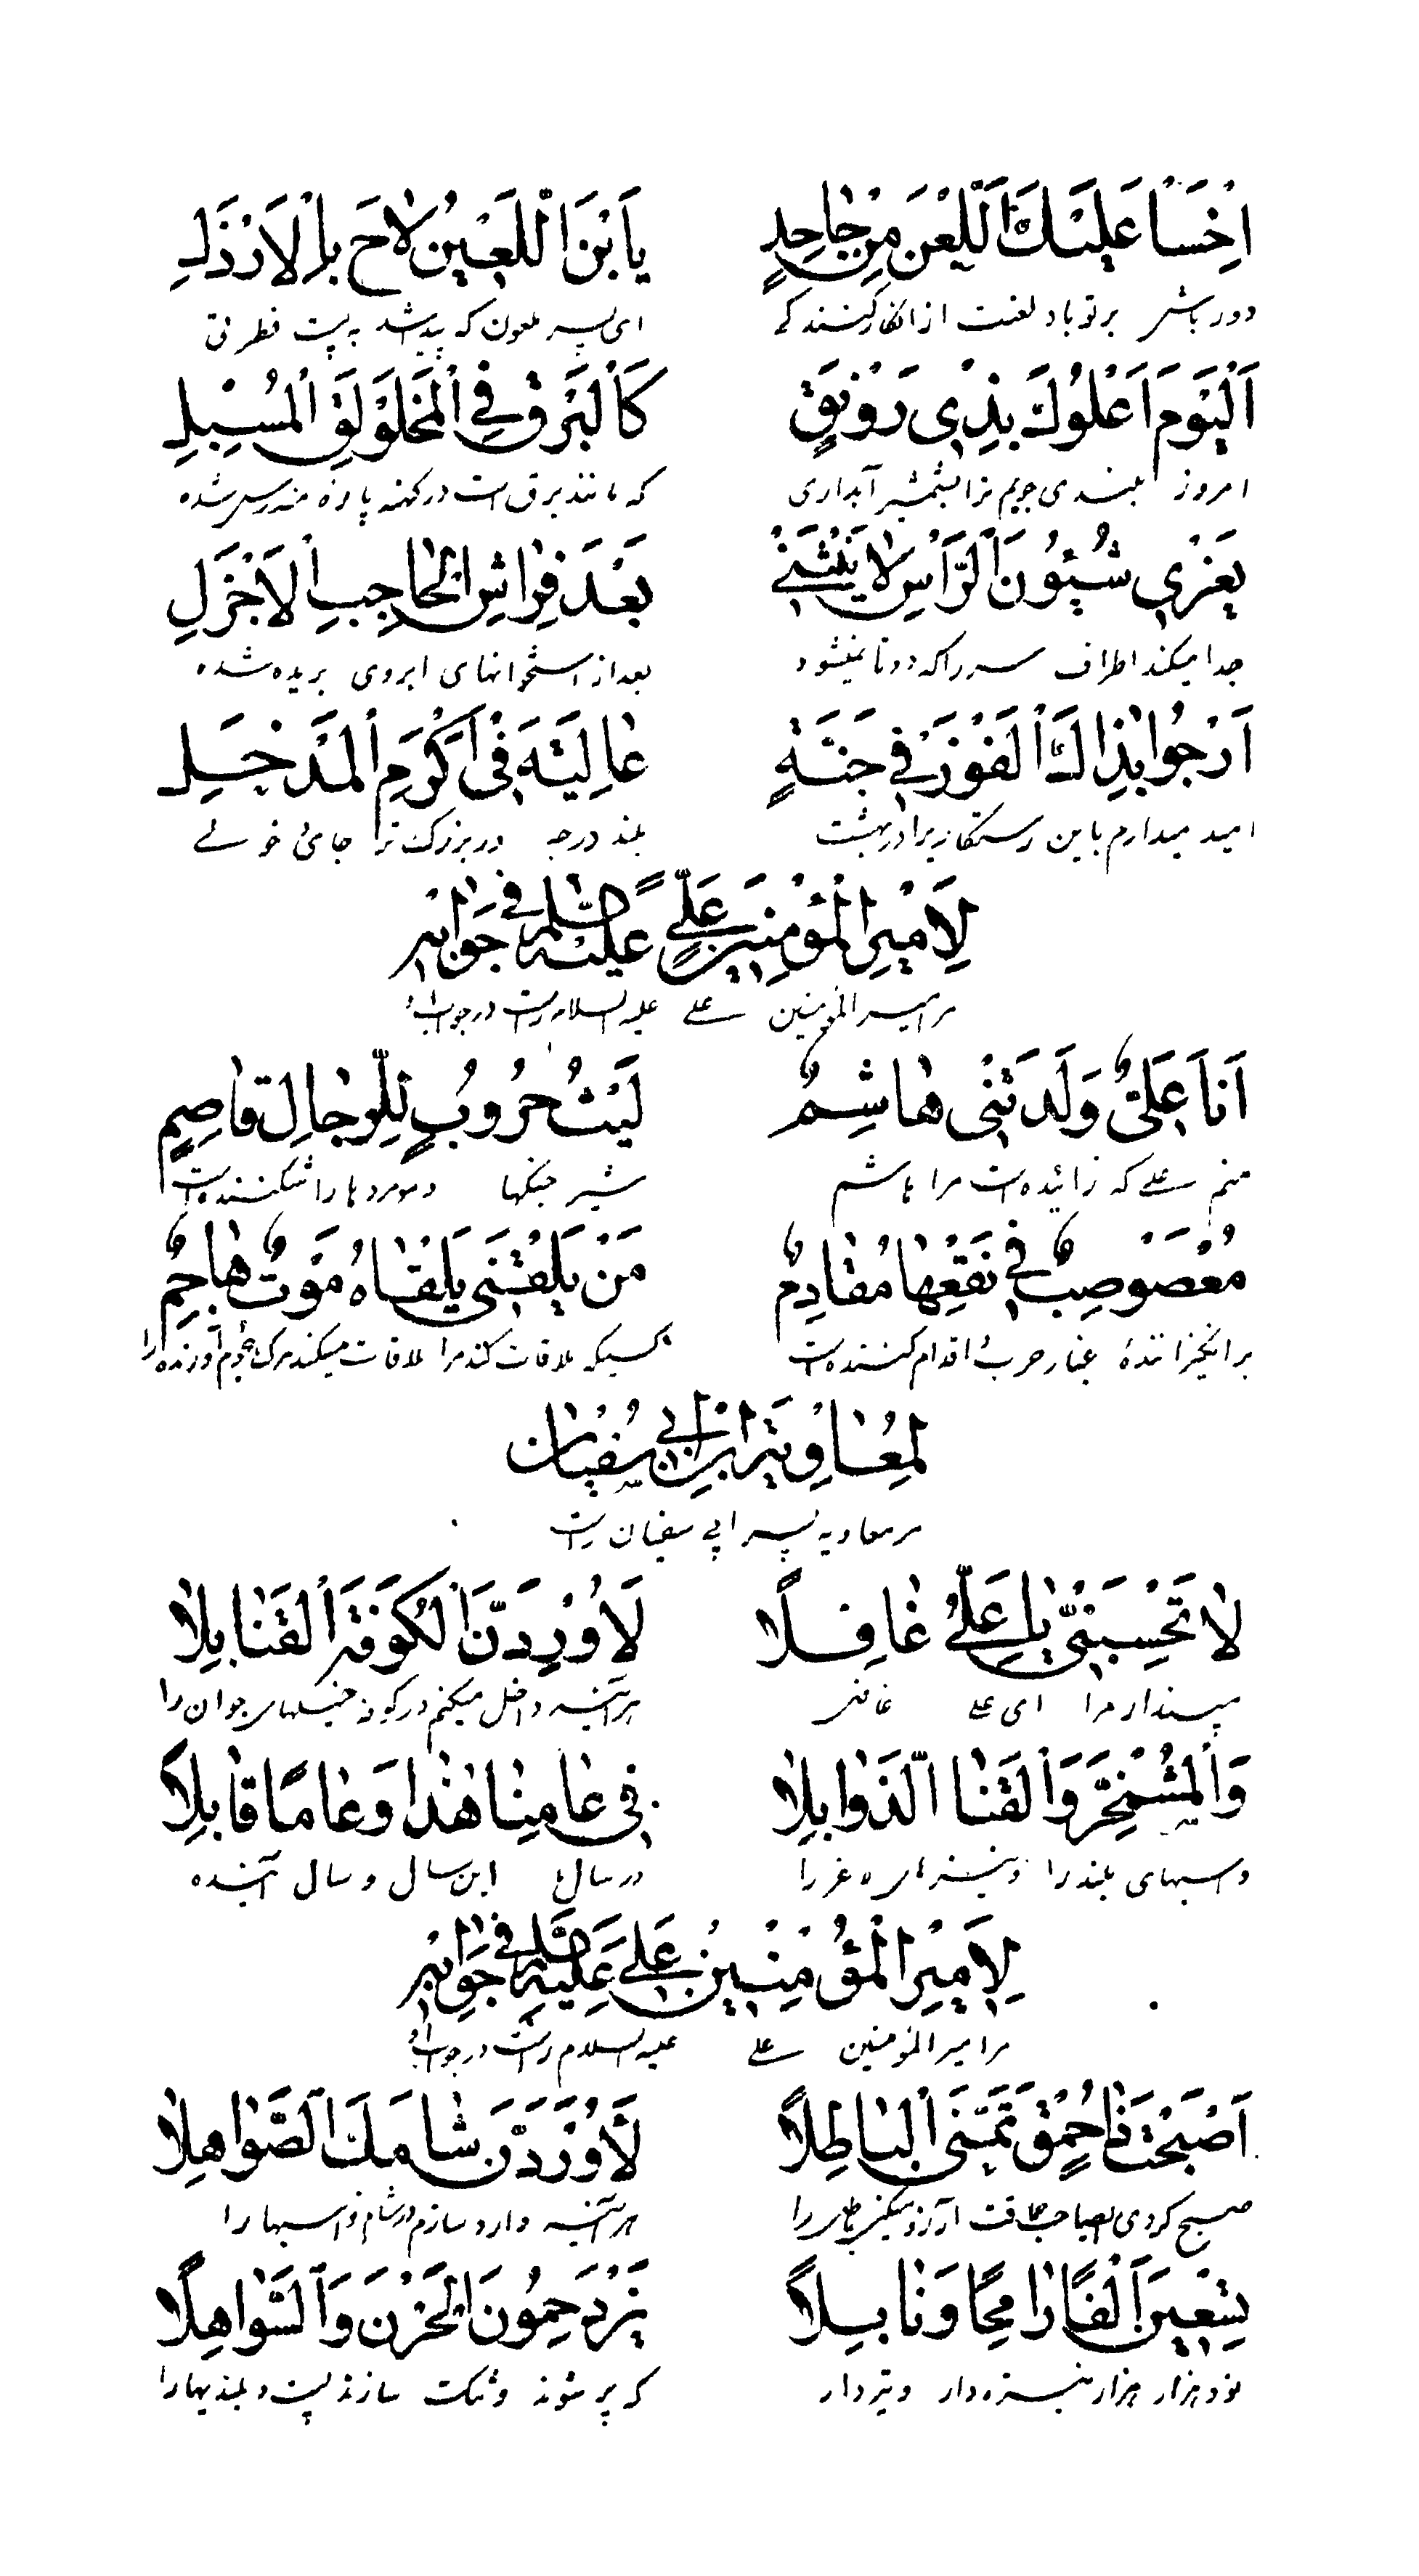 اِخْسَأْ عَلَيْكَ اللَّعْنُ مِنْ جَاحِدٍ يَا بْنَ اللَّعِينِ لَاحَ بِالْاَرْذَلِ
دور باش بر تو باد لعنت از انکار کننده ای پسر ملعون که پدید شد به پست فطرتی
اَلْيَوْمَ اَعْلُوكَ بِذِي رَوْنَقٍ كَالْبَرْقِ فِي الْمُخْلَوْلِقِ الْمُسْبِلِ
امروز بلندی جویم ترا بشمشیر آبداری که مانند برق است در کهنه پاره شده
يَفْرِي شُئُونَ الرَّأْسِ لَا يَنْثَنِي بَعْدَ فِرَاشِ الْحَاجِبِ الْاَجْزَلِ
جدا میکند اطراف سر را که دوتا نمیشود بعد از استخوانهای ابروی بریده شده
اَرْجُوا بِذَاكَ الْفَوْزَ فِي جَنَّةٍ عَالِيَةٍ فِي اَكْرَمِ الْمَدْخَلِ
امید میدارم باین رستگاریرا در بهشت بلند درجه در بزرگ تر جای
لِاَمِيرِ الْمُؤْمِنِينَ عَلِيٍّ عَلَيْهِ السَّلَامُ فِي جَوَابِهِ
مر امیر المؤمنین علی علیه السلام راست در جواب او
اَنَا عَلِيٌّ وَلَدَتْنِي هَاشِمٌ لَيْثُ حُرُوبٍ لِلرِّجَالِ قَاصِمٌ
منم علی که زائیده است مرا هاشم شیر جنگها و مر مردها را شکننده است
مُعْصَوْصِبٌ فِي نَقْعِهَا مُقَادِمٌ مَنْ يَلْقَنِي يَلْقَاهُ مَوْتٌ هَاجِمٌ
بر انگیزاننده غبار حرب اقدام کننده است کسیکه ملاقات کند مرا ملاقات میکند مرگ هجوم آورنده را
لِمُعَاوِيَةَ ابْنِ اَبِي سُفْيَانَ
مر معاویه پسر ابی سفیان راست
لَا تَحْسَبَنِّي يَا عَلِيُّ غَافِلًا لَاُورِدَنَّ الْكُوفَةَ الْقَنَابِلَا
مپندار مرا ای علی غافل هر آینه داخل میکنم در کوفه خیلهای جوان را
وَالْمُشْمَخِرَّ وَالْقَنَا الذَّوَابِلَا فِي عَامِنَا هَذَا وَعَامًا قَابِلًا
و اسبهای بلند را و نیزهای را در سال این سال و سال آینده
لِاَمِيرِ الْمُؤْمِنِينَ عَلِيٍّ عَلَيْهِ السَّلَامُ فِي جَوَابِهِ
مر امیر المؤمنین علی علیه السلام راست در جواب او
اَصْبَحْتَ ذَا حُمْقٍ تَمَنَّى الْبَاطِلَا لَاُورِدَنَّ شَامَكَ الصَّوَاهِلَا
صبح کردی صاحب حماقت آرزو میکنی باطل را هر آینه وارد سازم در شام تو اسبها را
تِسْعِينَ اَلْفًا رَامِحًا وَنَابِلًا يَزْدَحِمُونَ الْحَزْنَ وَالسَّوَاهِلَا
نود هزار هزار نیزه دار و تیر دار که پر شوند و سازند پست و بلندیها را